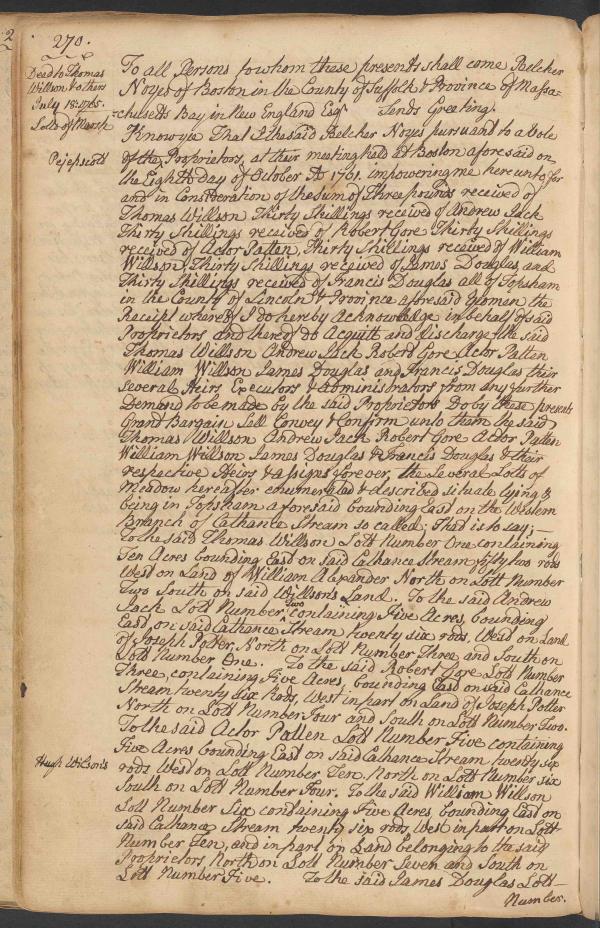 270.
Deed to Thomas
Willson & others
July 18. 1765.
Lotts of Marsh
Pejepscott
To all Persons to whom these presents shall come Belcher
Noyes of Boston in the County of Suffolk & Province of Massa-
chusetts Bay in New England Esqr Sends Greeting.
Know ye That I the said Belcher Noyes pursuant to a Vote
of the Proprietors, at their meeting held at Boston aforesaid on
the Eighth day of October AD 1761. impowering me hereunto for
and in Consideration of the sum of Three pounds received of
Thomas Willson Thirty Shillings received of Andrew Jack
Thirty Shillings received of Robert Gore Thirty Shillings
received of Actor Patten, Thirty Shillings received of William
Willson, Thirty Shillings received of James Douglas, and
Thirty Shillings received of Francis Douglas all of Topsham
in the County of Lincoln & Province aforesaid Yeomen the
Receipt whereof I do hereby Acknowledge in behalf of said
Proprietors and thereof do Acquitt and discharge the said
Thomas Willson Andrew Jack Robert Gore Actor Patten
William Willson James Douglas and Francis Douglas their
Several Heirs Executors & administrators from any further
Demand to be made by the said Proprietors Do by these presents
Grant Bargain Sell Convey & Confirm unto them the said
Thomas Willson Andrew Jack Robert Gore Actor Patten
William Willson James Douglas & Francis Douglas & their
respective Heirs & assigns forever, the Several Lotts of
Meadow hereafter enumerated & described situate lying &
being in Topsham aforesaid bounding East on the Western
Branch of Cathance Stream so called; That is to say; —
To the said Thomas Willson Lott Number One containing
Ten Acres bounding East on said Cathance Stream fifty two rods
West on Land of William Alexander North on Lott Number
Two South on said Willsons Land. To the said Andrew
Jack Lott Number Two containing Five Acres, bounding
East, on said Cathance Stream twenty six rods, West on Land
of Joseph Potter, North on Lott Number Three and South on
Lott Number One. To the said Robert Gore Lott Number
Three, containing Five Acres, bounding East on said Cathance
Stream twenty six Rods, West in part on Land of Joseph Potter
North on Lott Number Four and South on Lott Number Two.
To the said Actor Patten Lott Number Five containing
Five Acres bounding East on said Cathance Stream twenty six
Hugh Wilson's
rods West on Lott Number Ten, North on Lott Number six
South on Lott Number Four. To the said William Willson
Lott Number Six containing Five Acres, bounding East on
said Cathance Stream twenty six rods, West in part on Lott
Number Ten, and in part on Land belonging to the said
Proprietors, North on Lott Number Seven and South on
Lott Number Five. To the said James Douglas Lott
Number.